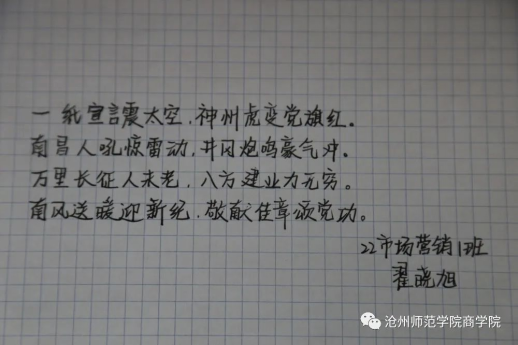 一纸宣言震太空,神州虎变党旗红。
南昌人吼惊雷动,井冈炮鸣豪气冲。
万里长征人未老,八方建业力无穷。
南风送暖迎新纪,敬献佳章颂党功。
22市场营销1班
翟晓旭
沧州师范学院商学院